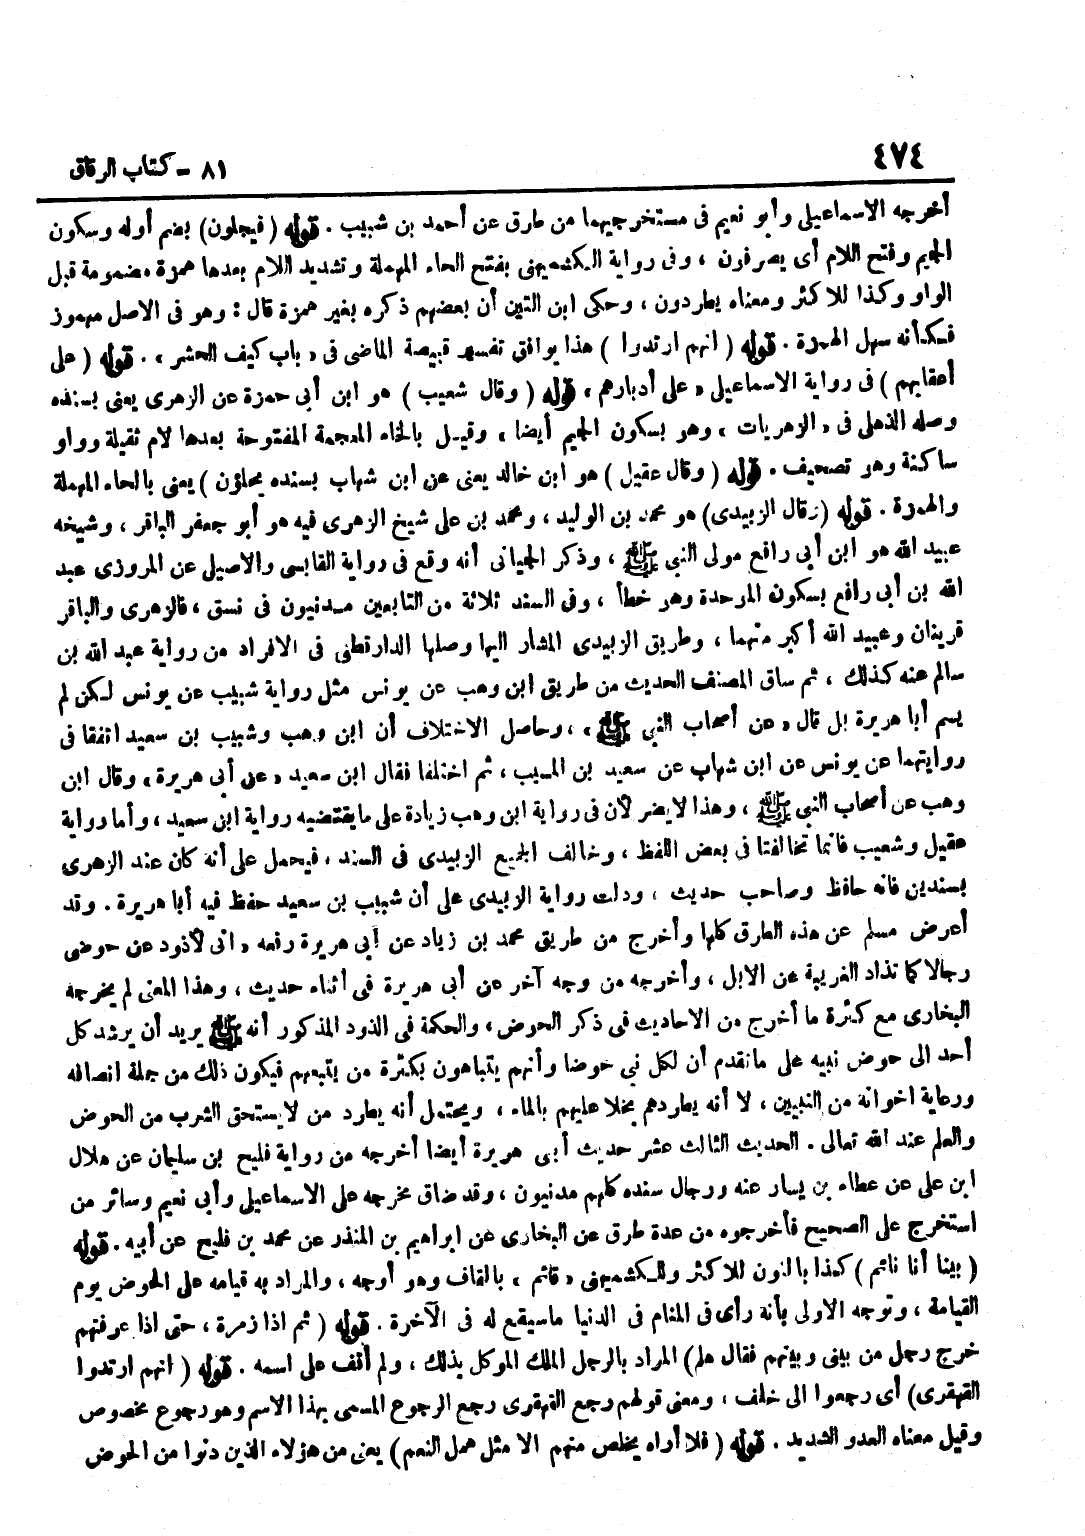 ٤٧٤
٨١ - كتاب الرقاق
أخرجه الاسماعيلى وأبو نعيم فى مستخرجيهما من طرق عن أحمد بن شبيب . قوله ( فيجلون) بضم أوله وسكون
الجيم وفتح اللام أى يصرفون ، وفى رواية الكشميهنى بفتح الحاء المهملة وتشديد اللام بعدها همزة مضمومة قبل
الواو وكذا للاكثر ومعناه يطردون ، وحكى ابن التين أن بعضهم ذكره بغير همزة قال : وهو فى الاصل مهموز
فكأنه سهل الهمزة . قوله ( انهم ارتدوا ) هذا يوافق تفسير قبيصة الماضى فى « باب كيف الحشر » . قوله ( على
أعقابهم ) فى رواية الاسماعيلى « على أدبارهم » قوله ( وقال شعيب ) هو ابن أبى حمزة عن الزهرى يعنى بسنده
وصله الذهلى فى « الزهريات » وهو بسكون الجيم أيضا ، وقيل بالخاء المعجمة المفتوحة بعدها لام ثقيلة وواو
ساكنة وهو تصحيف . قوله ( وقال عقيل ) هو ابن خالد يعنى عن ابن شهاب بسنده يحلؤن ) يعنى بالحاء المهملة
والهمزة . قوله (وقال الزبيدى) هو محمد بن الوليد ، ومحمد بن على شيخ الزهرى فيه هو أبو جعفر الباقر ، وشيخه
عبيد الله هو ابن أبى رافع مولى النبى ﷺ ، وذكر الجيانى أنه وقع فى رواية القابسى والاصيلى عن المروزى عبد
الله بن أبى رافع بسكون الموحدة وهو خطأ ، وفى السند ثلاثة من التابعين مدنيون فى نسق ، فالزهرى والباقر
قرينان وعبيد الله أكبر منهما ، وطريق الزبيدى المشار اليها وصلها الدارقطنى فى الافراد من رواية عبد الله بن
سالم عنه كذلك ، ثم ساق المصنف الحديث من طريق ابن وهب عن يونس مثل رواية شبيب عن يونس لكن لم
يسم أبا هريرة بل قال « عن أصحاب النبى ﷺ » ، وحاصل الاختلاف أن ابن وهب وشبيب بن سعيد اتفقا فى
روايتهما عن يونس عن ابن شهاب عن سعيد بن المسيب ، ثم اختلفا فقال ابن سعيد « عن أبى هريرة » وقال ابن
وهب عن أصحاب النبى ﷺ ، وهذا لا يضر لأن فى رواية ابن وهب زيادة على ما يقتضيه رواية ابن سعيد ، وأما رواية
عقيل وشعيب فانما تخالفتا فى بعض اللفظ ، وخالف الجميع الزبيدى فى السند ، فيحمل على أنه كان عند الزهرى
بسندين فانه حافظ وصاحب حديث ، ودلت رواية الزبيدى على أن شبيب بن سعيد حفظ فيه أبا هريرة . وقد
أعرض مسلم عن هذه الطرق كلها وأخرج من طريق محمد بن زياد عن أبى هريرة رفعه « انى لأذود عن حوضى
رجالا كما تذاد الغريبة عن الابل » وأخرجه من وجه آخر عن أبى هريرة فى أثناء حديث ، وهذا المعنى لم يخرجه
البخارى مع كثرة ما أخرج من الاحاديث فى ذكر الحوض ، والحكمة فى الذود المذكور أنه ﷺ يريد أن يرشد كل
أحد الى حوض نبيه على ما تقدم أن لكل نبى حوضا وأنهم يتباهون بكثرة من يتبعهم فيكون ذلك من جملة انصافه
ورعاية اخوانه من النبيين ، لا أنه يطردهم بخلا عليهم بالماء ، ويحتمل أنه يطرد من لا يستحق الشرب من الحوض
والعلم عند الله تعالى . الحديث الثالث عشر حديث أبى هريرة أيضا أخرجه من رواية فليح بن سليمان عن هلال
ابن على عن عطاء بن يسار عنه ورجال سنده كلهم مدنيون ، وقد ضاق مخرجه على الاسماعيلى وأبى نعيم وسائر من
استخرج على الصحيح فأخرجوه من عدة طرق عن البخارى عن ابراهيم بن المنذر عن محمد بن فليح عن أبيه . قوله
( بينا أنا نائم ) كذا بالنون للاكثر وللكشميهنى « قائم » بالقاف وهو أوجه ، والمراد به قيامه على الحوض يوم
القيامة ، وتوجه الاولى بأنه رأى فى المنام فى الدنيا ما سيقع له فى الآخرة . قوله ( ثم اذا زمرة ، حتى اذا عرفتهم
خرج رجل من بينى وبينهم فقال هلم) المراد بالرجل الملك الموكل بذلك ، ولم أقف على اسمه . قوله ( انهم ارتدوا
القهقرى) أى رجعوا الى خلف ، ومعنى قولهم رجع القهقرى رجع الرجوع المسمى بهذا الاسم وهو رجوع مخصوص
وقيل معناه العدو الشديد . قوله ( فلا أراه يخلص منهم الا مثل همل النعم ) يعنى من هؤلاء الذين دنوا من الحوض